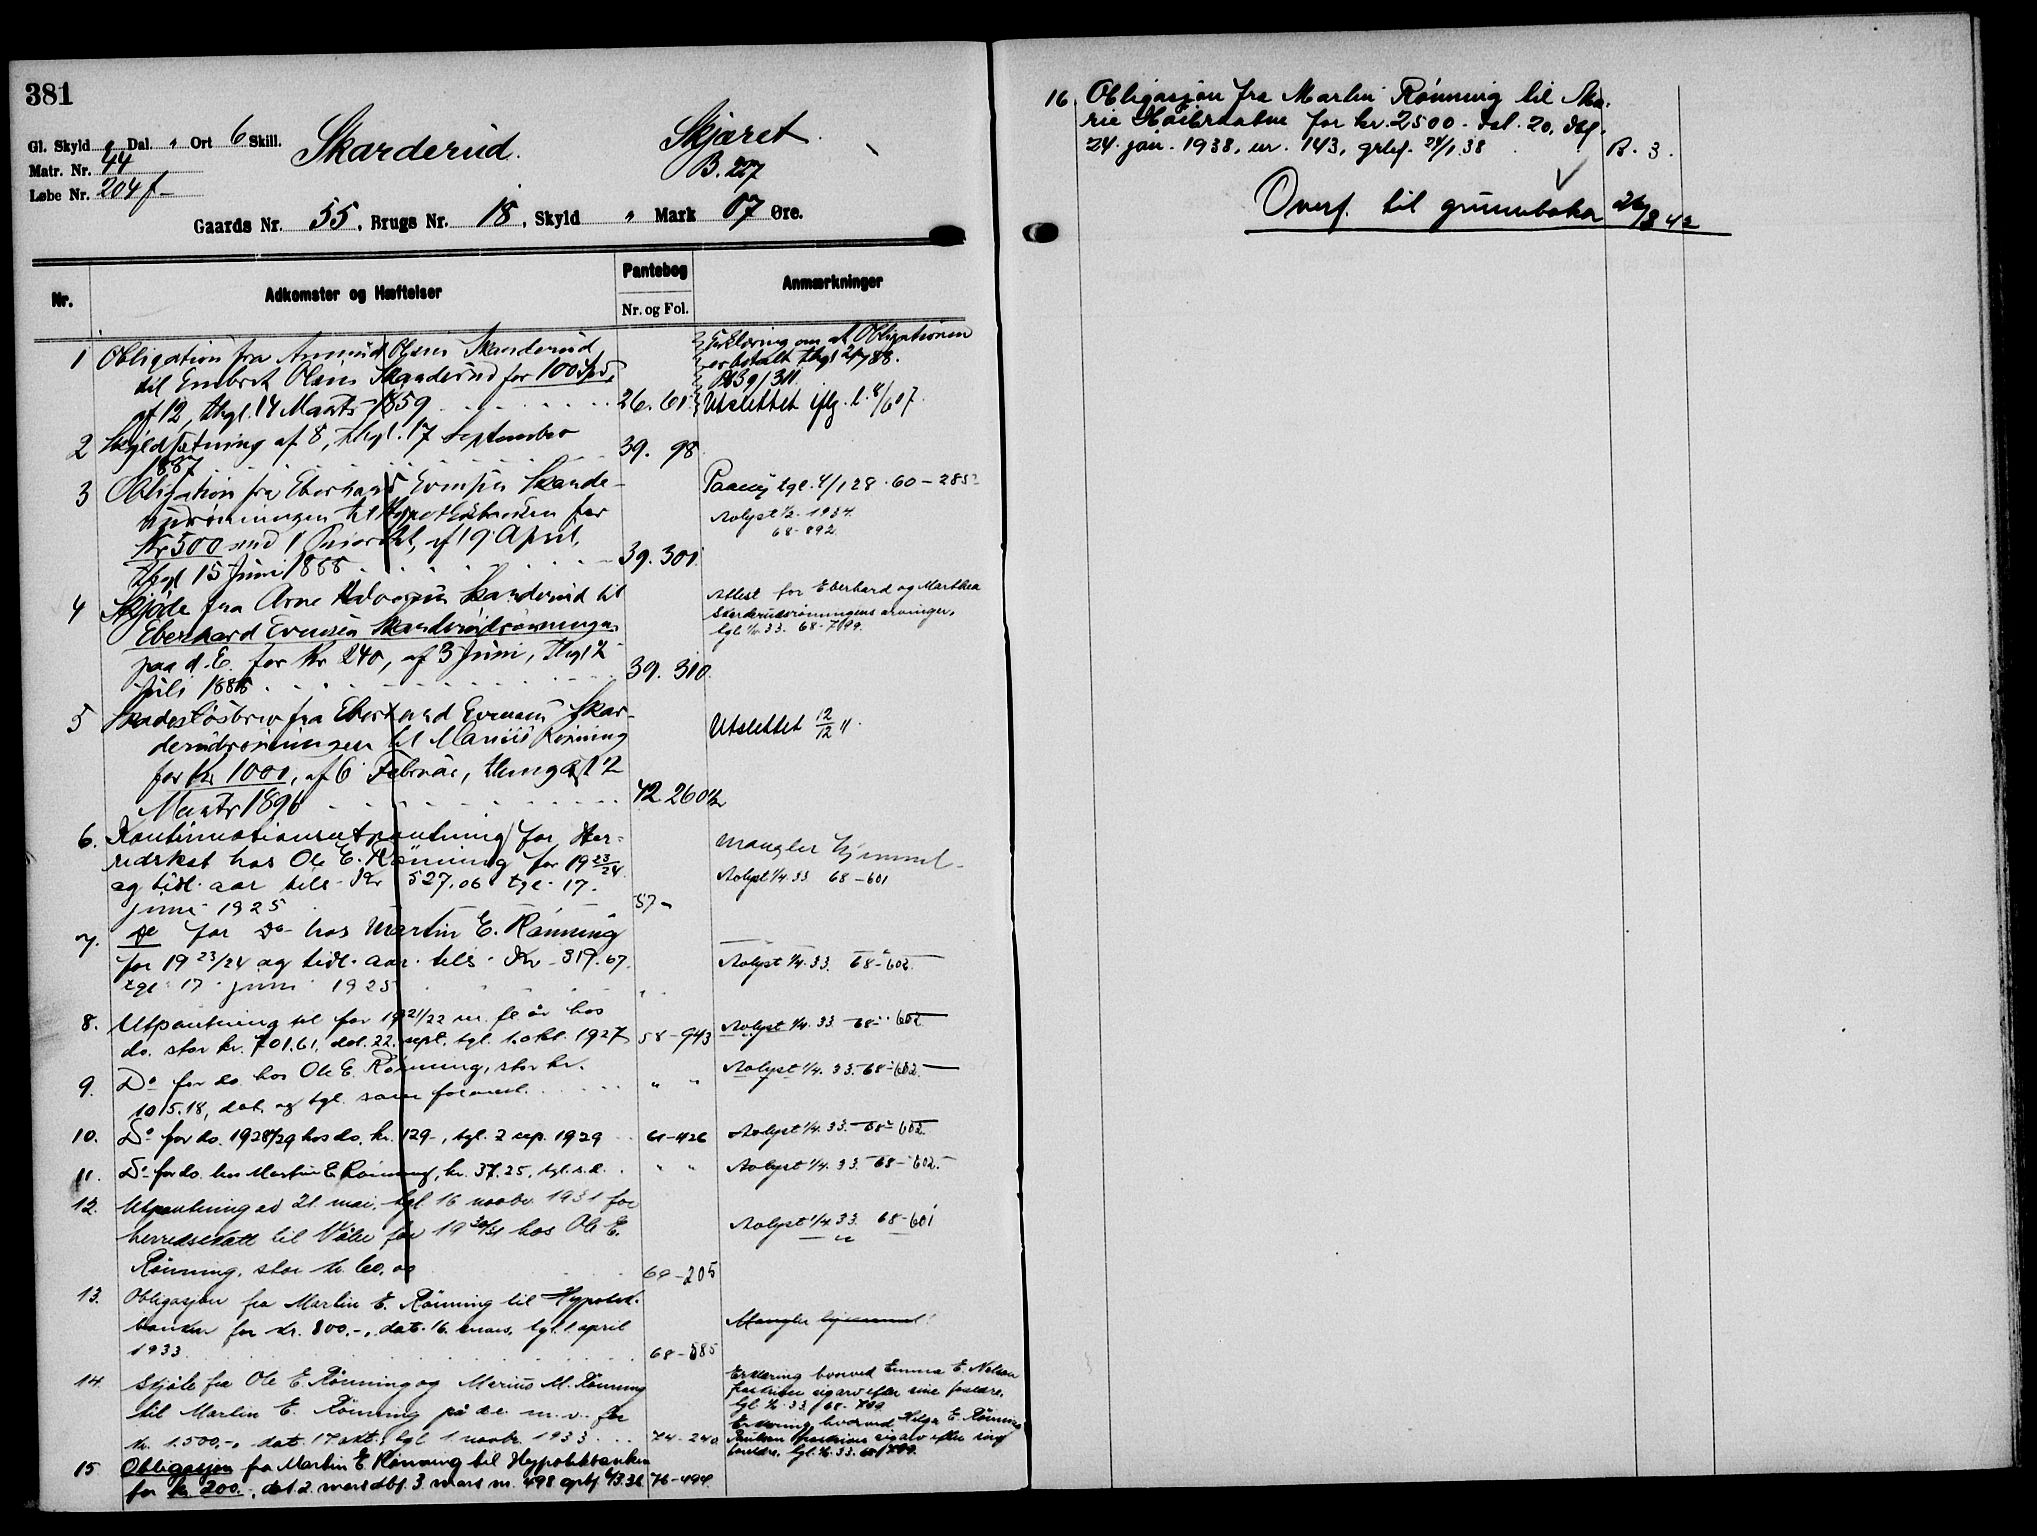 381
Gl. Skyld " Dal. " Ort 6 Skill.
Matr. Nr. 44
Løbe Nr. 204 f
Skarderud.
Skjæret
B. 227
Gaards Nr. 55, Brugs Nr. 18, Skyld " Mark 07 Øre.
Nr.
Adkomster og Hæftelser
Pantebog
Nr. og Fol.
Anmærkninger
1 Obligation fra Amund Olsen Skarderud
til Embret Olsen Skarderud for 100 Spd,
af 12, thgl. 14 Marts 1859 26. 61
Erklæring om at Obligationen
er betalt thgl 2/7 88.
39/311.
Utslettet iflg. l. 8/6 07.
2 Skyldsætning af 8, thgl. 17 September
1887 39. 98
3 Obligation fra Eberhard Evensen Skarde-
rudrønningen til Hypothekbanken for
Kr 500 med 1 Prioritet, af 19 April,
thgl 15 Juni 1888 39. 301
Paany tgl. 4/1 28. 60-285
Avlyst 1/2. 1934.
68-892
4 Skjøde fra Arne Skarderud til
Eberhard Evensen Skarderudrønningen
paa d. E. for Kr 240, af 3 Juni, thgl 2
Juli 1888 39. 310.
Attest for Eberhard og Marthea
Skarderudsrønningens arvinger,
tgl. 33. 68-799.
5 Skadesløsbrev fra Eberhard Evensen Skar-
derudrønningen til Marius Rønning
for Kr 1000, af 6 Februar, thinglyst 2
Marts 1896 42 260
Utslettet 12/12 11.
6. Kontinuationsutpantning for Her-
redskat hos Ole E. Rønning for 1923/24
og tidl. aar tils. Kr 527.06 tgl. 17.
juni 1925 57-
Mangler hjemmel
Avlyst 1/4 33 68-601
7. do for Do hos Martin E. Rønning
for 1923/24 og tidl. aar. tils. Kr. 319.67.
tgl. 17. juni 1925
Avlyst 1/4. 33. 68-602.
8. Utpantning til for 1921/22 m. fl år hos
do. stor kr. 701.61, dat. 22. sept. tgl. 1. okt. 1927 58-943
Avlyst 1/4. 33. 68-602
9. Do for do. hos Ole E. Rønning, stor kr.
1015.18, dat. og tgl. som foranst. " "
Avlyst 1/4. 33. 68-602.
10. Do for do. 1928/29 hos do. kr. 129-, tgl. 2 sep. 1929 61-426
Avlyst 1/4. 33. 68-602.
11. Do for do. hos Martin E. Rønning, kr. 37.25, tgl. s.d. " "
Avlyst 1/4. 33. 68-602.
12. Utpantning av 21. mai, tgl. 16 novbr. 1931 for
herredsskatt til Våler for 1930/31 hos Ole E.
Rønning, stor kr. 60.00 69-205
Avlyst 1/4 33. 68-601
13. Obligasjon fra Martin E. Rønning til Hypotek-
banken for kr. 800.-, dat. 16. mars, tgl. 1 april
1933 68-585
Mangler hjemmel!
14. Skjøte fra Ole E. Rønning og Marius M. Rønning
til Martin E. Rønning på d.e. m.v. for
kr. 1.500.-, dat. 17 okt., tgl. 1 novbr. 1933 74-240
Erklæring hvorved Emma E. Nelson
fraskriver sig arv efter sine foreldre,
tgl. 33. / 68-799
Erklæring hvorved Helga E. Rønning
fraskriver sig arv efter sine
foreldre, tgl. 33. 68/799.
15 Obligasjon fra Martin E. Rønning til Hypotekbanken
for kr 200.-, dat 2. mars dbf. 3. mars nr. 498 76-494.
16 Obligasjon fra Martin Rønning til Ma-
rie for kr. 2500.- dat. 20. dbf.
24. jan. 1938, nr. 143, grbf. 24/1 38 B. 3.
Overf. til grunnboka 26/8 42